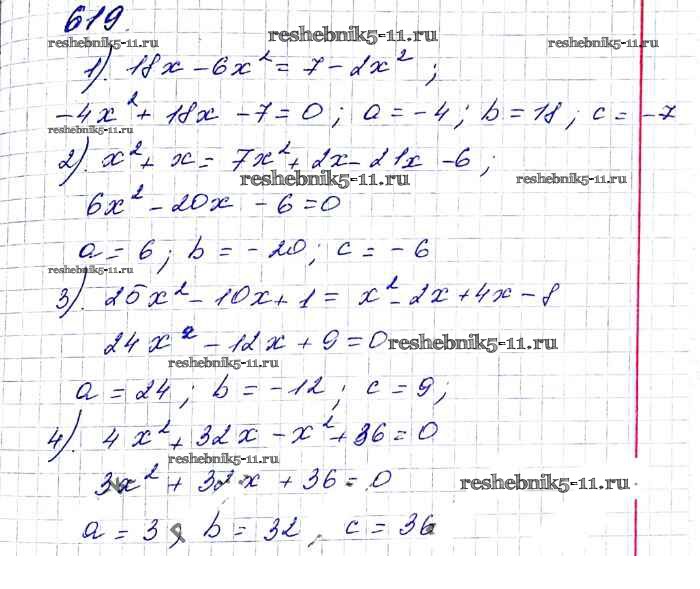 619.
reshebnik5-11.ru reshebnik5-11.ru reshebnik5-11.ru
1). 18x - 6x² = 7 - 2x² ;
-4x² + 18x - 7 = 0 ; a = -4 ; b = 18 ; c = -7
reshebnik5-11.ru
2). x² + x = 7x² + 2x - 21x - 6 ;
reshebnik5-11.ru reshebnik5-11.ru
6x² - 20x - 6 = 0
a = 6 ; b = -20 ; c = -6
reshebnik5-11.ru
3). 25x² - 10x + 1 = x² - 2x + 4x - 8
24x² - 12x + 9 = 0 reshebnik5-11.ru
reshebnik5-11.ru
a = 24 ; b = -12 ; c = 9 ;
4). 4x² + 32x - x² + 36 = 0
reshebnik5-11.ru
3x² + 32x + 36 = 0 reshebnik5-11.ru
a = 3 ; b = 32 , c = 36